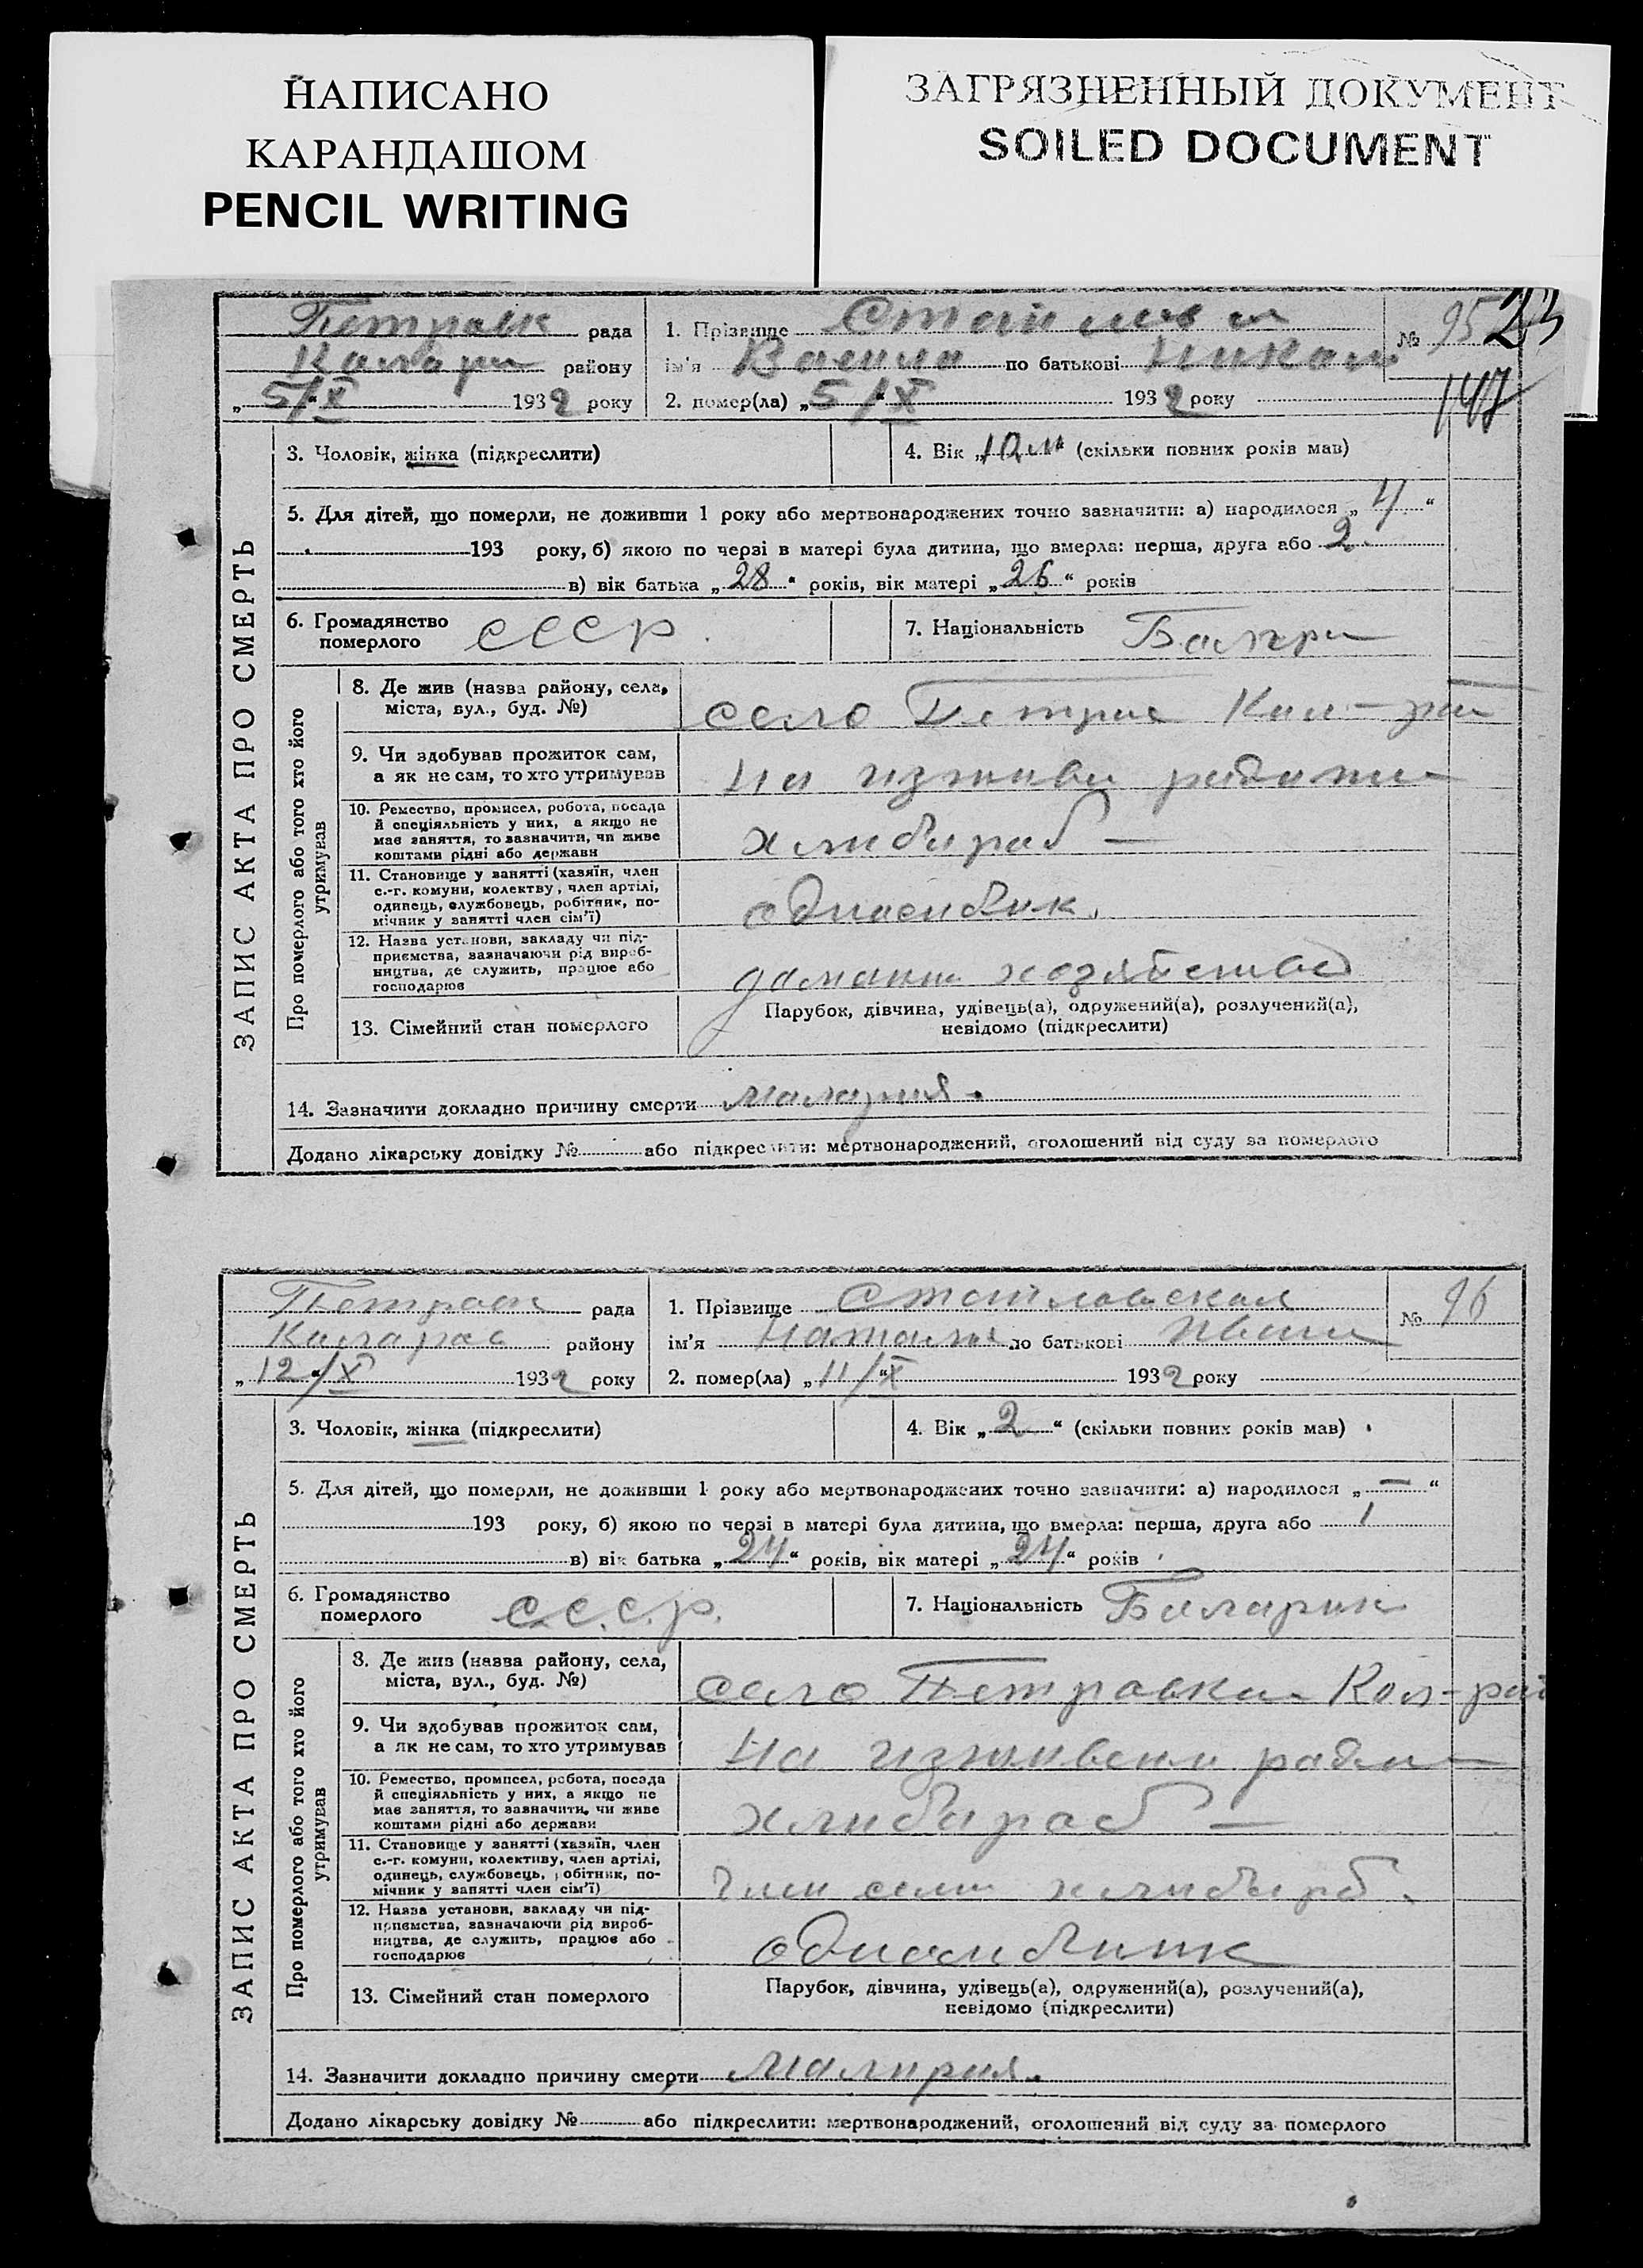 НАПИСАНО
КАРАНДАШОМ
PENCIL WRITING
ЗАГРЯЗНЕННЫЙ ДОКУМЕНТ
SOILED DOCUMENT
ЗАПИС АКТА ПРО СМЕРТЬ
рада
району
„5/X 1932 року
1. Прізвище
ім'я по батькові
2. помер(ла) „5/X“ 1932 року
№ 95 23
147
3. Чоловік, жінка (підкреслити)
4. Вік „10 м“ (скільки повних років мав)
5. Для дітей, що померли, не доживши 1 року або мертвонароджених точно зазначити: а) народилося „ “
193 року, б) якою по черзі в матері була дитина, що вмерла: перша, друга або 2
в) вік батька „28“ років, вік матері „26“ років
6. Громадянство
померлого
СССР
7. Національність
Про померлого або того хто його
утримував
8. Де жив (назва району, села,
міста, вул., буд. №)
село
9. Чи здобував прожиток сам,
а як не сам, то хто утримував
на
10. Ремество, промисел, робота, посада
й спеціяльність у них, а якщо не
має заняття, то зазначити, чи живе
коштами рідні або держави
хлибораб —
11. Становище у занятті (хазяїн, член
с.-г. комуни, колективу, член артілі,
одинець, службовець, робітник, по-
мічник у занятті член сім'ї)
12. Назва установи, закладу чи під-
приємства, зазначаючи рід вироб-
ництва, де служить, працює або
господарює
хозяйство
13. Сімейний стан померлого
Парубок, дівчина, удівець(а), одружений(а), розлучений(а),
невідомо (підкреслити)
14. Зазначити докладно причину смерти малария.
Додано лікарську довідку № або підкреслити: мертвонароджений, оголошений від суду за померлого
ЗАПИС АКТА ПРО СМЕРТЬ
рада
району
„12“/X 1932 року
1. Прізвище Стоиловская
ім'я Наталия по батькові Иван
2. помер(ла) „11/X“ 1932 року
№ 96
3. Чоловік, жінка (підкреслити)
4. Вік „2“ (скільки повних років мав)
5. Для дітей, що померли, не доживши 1 року або мертвонароджених точно зазначити: а) народилося „—“
193 року, б) якою по черзі в матері була дитина, що вмерла: перша, друга або 1
в) вік батька „24“ років, вік матері „24“ років
6. Громадянство
померлого
С.С.С.р.
7. Національність
Про померлого або того хто його
утримував
8. Де жив (назва району, села,
міста, вул., буд. №)
село Петровка Кол-рай
9. Чи здобував прожиток сам,
а як не сам, то хто утримував
на
10. Ремество, промисел, робота, посада
й спеціяльність у них, а якщо не
має заняття, то зазначити, чи живе
коштами рідні або держави
хлибораб —
11. Становище у занятті (хазяїн, член
с.-г. комуни, колективу, член артілі,
одинець, службовець, робітник, по-
мічник у занятті член сім'ї)
Член
12. Назва установи, закладу чи під-
приємства, зазначаючи рід вироб-
ництва, де служить, працює або
господарює
13. Сімейний стан померлого
Парубок, дівчина, удівець(а), одружений(а), розлучений(а),
невідомо (підкреслити)
14. Зазначити докладно причину смерти
Додано лікарську довідку № або підкреслити: мертвонароджений, оголошений від суду за померлого